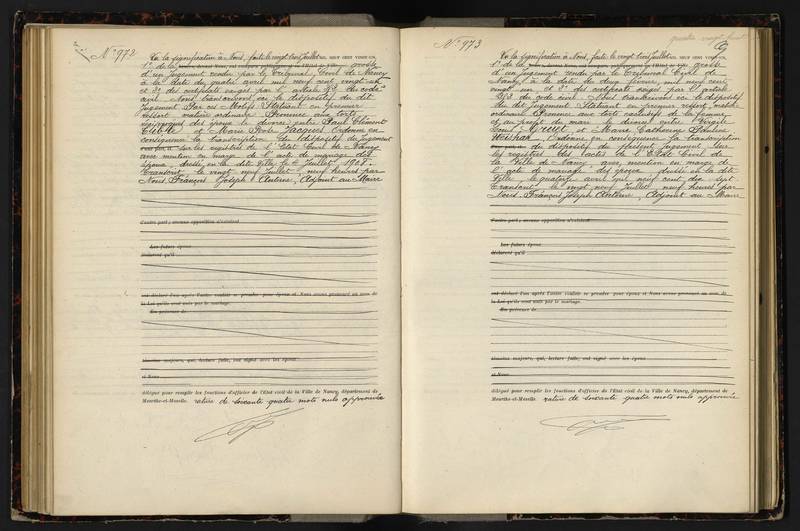 N° 972
Vu la signification à Nous, faite le vingt huit Juillet mil neuf cent vingt un,
1° de la grosse
d'un jugement rendu par le Tribunal Civil de Nancy
à la date du quatre avril mil neuf cent vingt-un
et 2° des certificats exigés par l'article 2 du code
civil. Nous transcrivons ici le dispositif du dit
jugement. Par ces Motifs Statuant en premier
ressort matière ordinaire Prononce aux torts
réciproques des époux le divorce entre Paul Clément
et Marie Jacques Ordonne en
conséquence la transcription du dispositif du jugement
sur les registres de l'Etat Civil de Nancy
avec mention en marge de l'acte de mariage des
époux, dressé en la dite Ville, le Juillet
Transcrit le vingt neuf Juillet neuf heures par
Nous François Joseph Antoine, Adjoint au Maire
d'autre part; aucune opposition n'existant
Les futurs époux
déclarent qu'il
ont déclaré l'un après l'autre vouloir se prendre pour époux et Nous avons prononcé au nom de
la Loi qu'ils sont unis par le mariage.
En présence de
témoins majeurs, qui, lecture faite, ont signé avec les époux
et Nous
délégué pour remplir les fonctions d'officier de l'Etat civil de la Ville de Nancy, département de
Meurthe-et-Moselle. rature de soixante quatre mots nuls approuvée
quatre vingt huit
N° 973
Vu la signification à Nous, faite le vingt huit Juillet mil neuf cent vingt-un,
1° de la grosse
d'un jugement rendu par le Tribunal Civil de
Nancy à la date du deux février mil neuf cent
vingt un et 2° des certificats exigés par l'article
du code civil. Nous transcrivons ici le dispositif
du dit jugement. Statuant en premier ressort, matière
ordinaire Prononce aux torts exclusifs de la femme
et au profit du mari le divorce entre
et Marie Catherine Pauline
Ordonne en conséquence la transcription
du dispositif du présent jugement sur
les registres des actes de l'Etat Civil de
la Ville de Nancy avec mention en marge de
l'acte de mariage des époux dressé en la dite
Ville le quatre avril mil neuf cent dix sept
Transcrit le vingt neuf Juillet neuf heures par
Nous François Joseph Antoine, Adjoint au Maire
d'autre part; aucune opposition n'existant
Les futurs époux
déclarent qu'il
ont déclaré l'un après l'autre vouloir se prendre pour époux et Nous avons prononcé au nom de
la Loi qu'ils sont unis par le mariage.
En présence de
témoins majeurs, qui, lecture faite, ont signé avec les époux
et Nous
délégué pour remplir les fonctions d'officier de l'Etat civil de la Ville de Nancy, département de
Meurthe-et-Moselle. rature de soixante quatre mots nuls approuvée